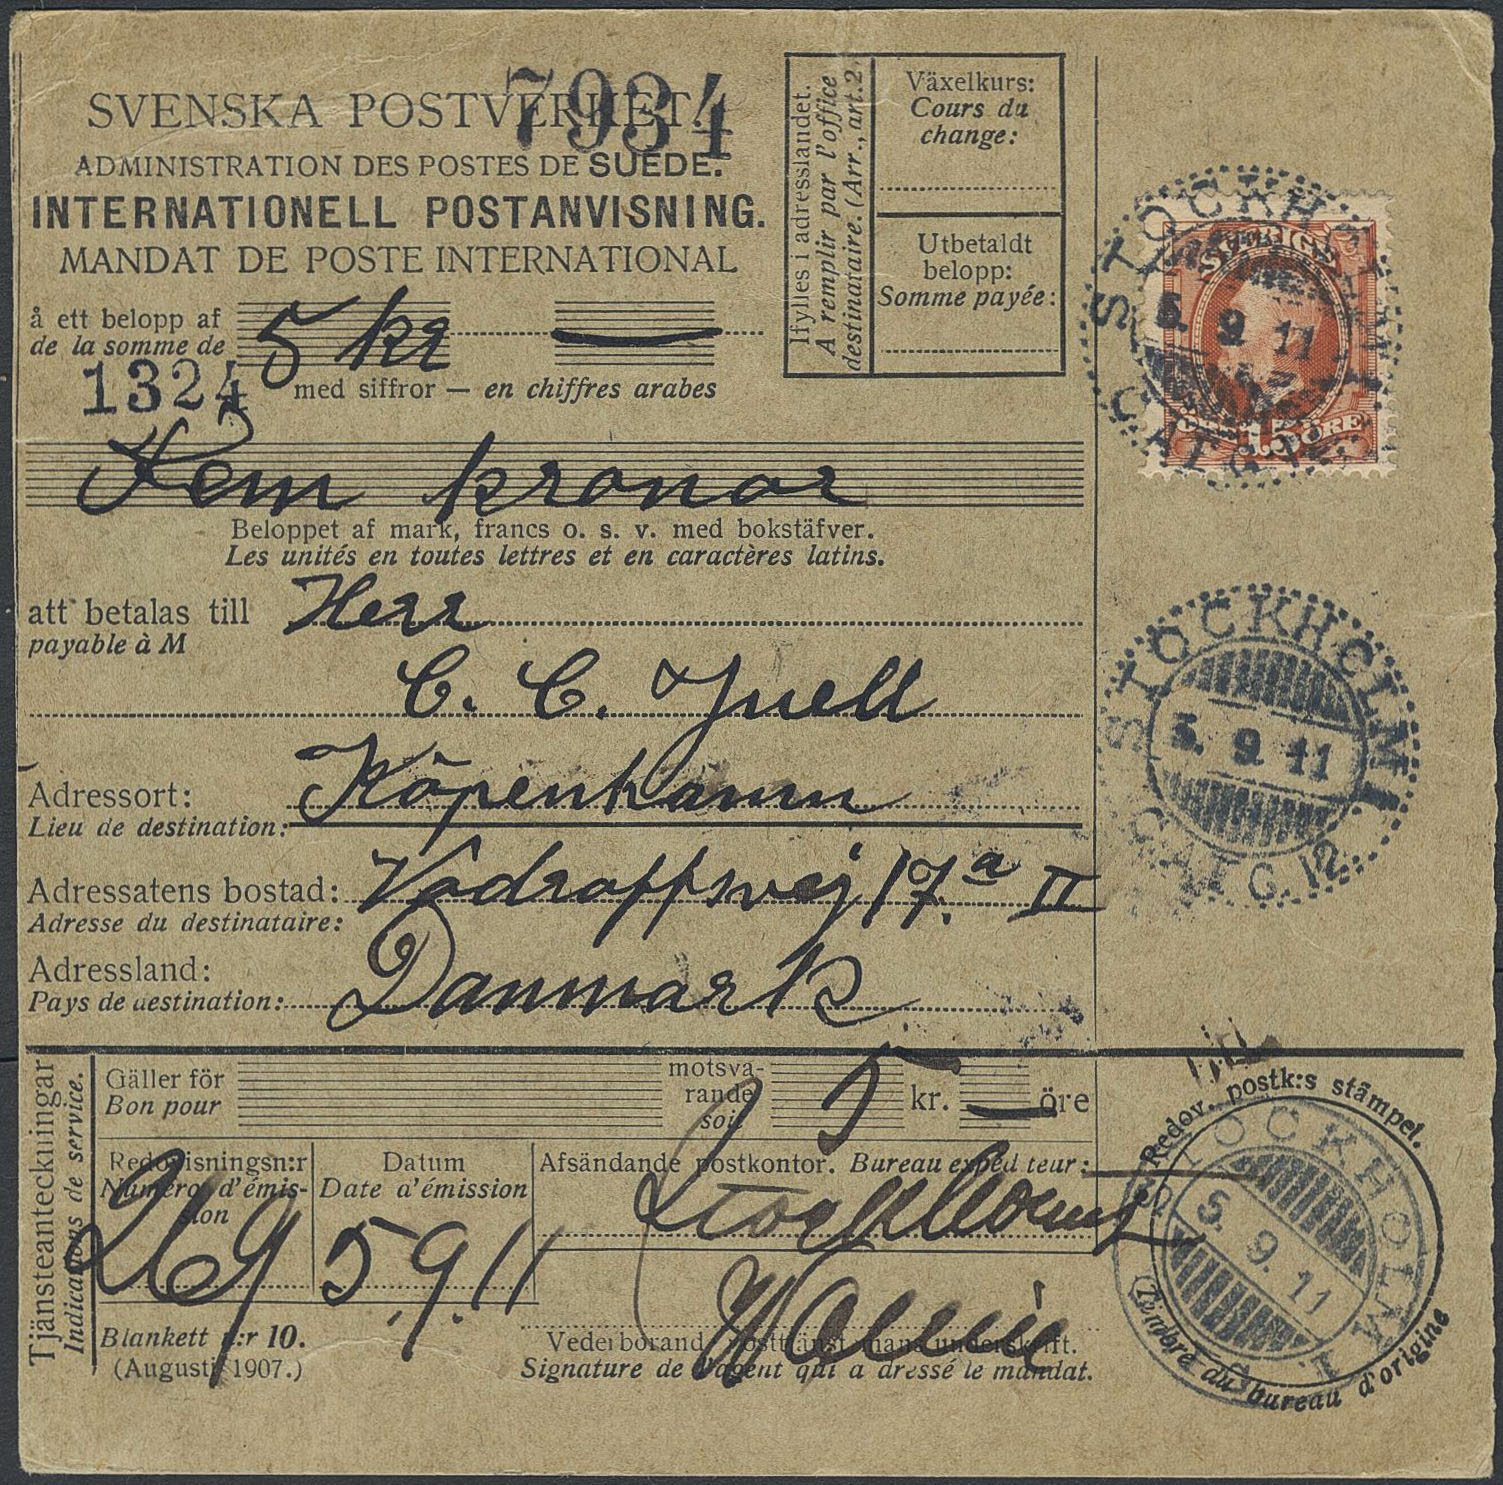 7934
SVENSKA POSTVERKET.
ADMINISTRATION DES POSTES DE SUÈDE.
INTERNATIONELL POSTANVISNING.
MANDAT DE POSTE INTERNATIONAL
å ett belopp af
de la somme de
5 kr —
1324
med siffror — en chiffres arabes
Ifylles i adresslandet.
A remplir par l'office
destinataire. (Arr., art. 2.
Växelkurs:
Cours du
change:
Utbetaldt
belopp:
Somme payée:
SVERIGE
15
ÖRE
STOCKHOLM 1
5. 9. 11
Fem kronor
Beloppet af mark, francs o. s. v. med bokstäfver.
Les unités en toutes lettres et en caractères latins.
att betalas till Herr
payable à M
C. C. Juell
Adressort: Köpenhamn
Lieu de destination:
Adressatens bostad: Vodroffsvej 17.a II
Adresse du destinataire:
Adressland: Danmark
Pays de destination:
STOCKHOLM 1
5. 9. 11
Tjänsteanteckningar
Indications de service.
Gäller för
Bon pour
motsva-
rande
soit
5 kr. — öre
Redovisningsn:r
Numéro d'émis-
sion
269
Datum
Date d'émission
5.9.11
Afsändande postkontor. Bureau expéditeur:
Stockholm 1
Blankett n:r 10.
(Augusti 1907.)
Vederbörand posttjänstemans underskrift.
Signature de l'agent qui a dressé le mandat.
Redov. postk:s stämpel.
STOCKHOLM 1.
5. 9. 11
(Timbre du bureau d'origine